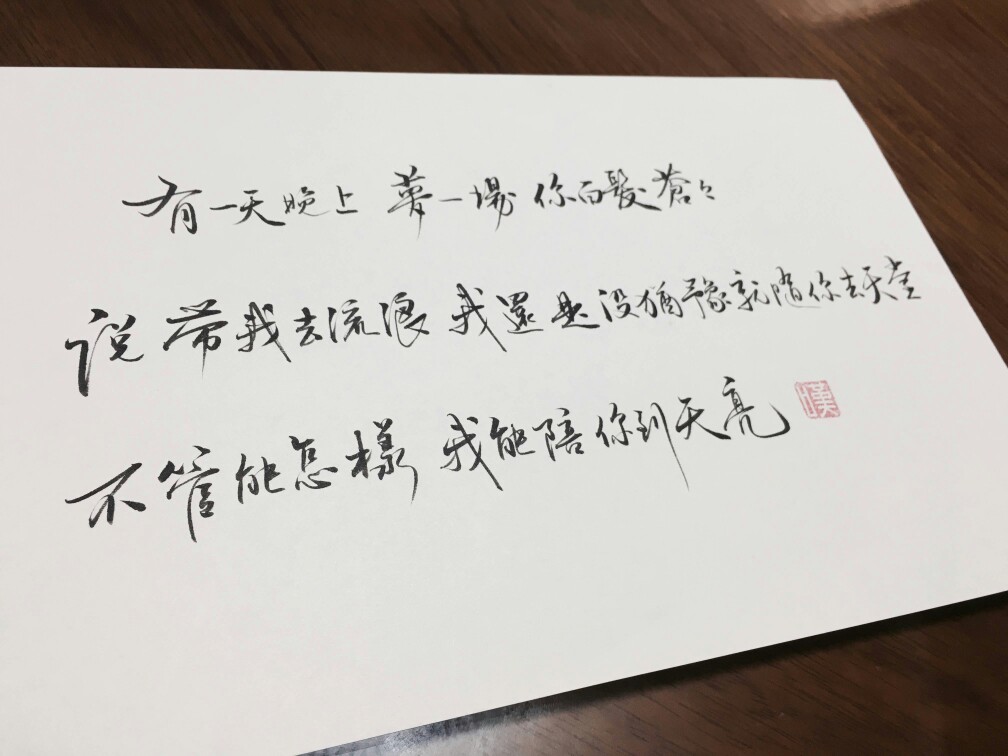 有一天晚上 夢一場 你白髮蒼々
说带我去流浪 我還是没猶豫就随你去天堂
不管能怎樣 我能陪你到天亮
漢